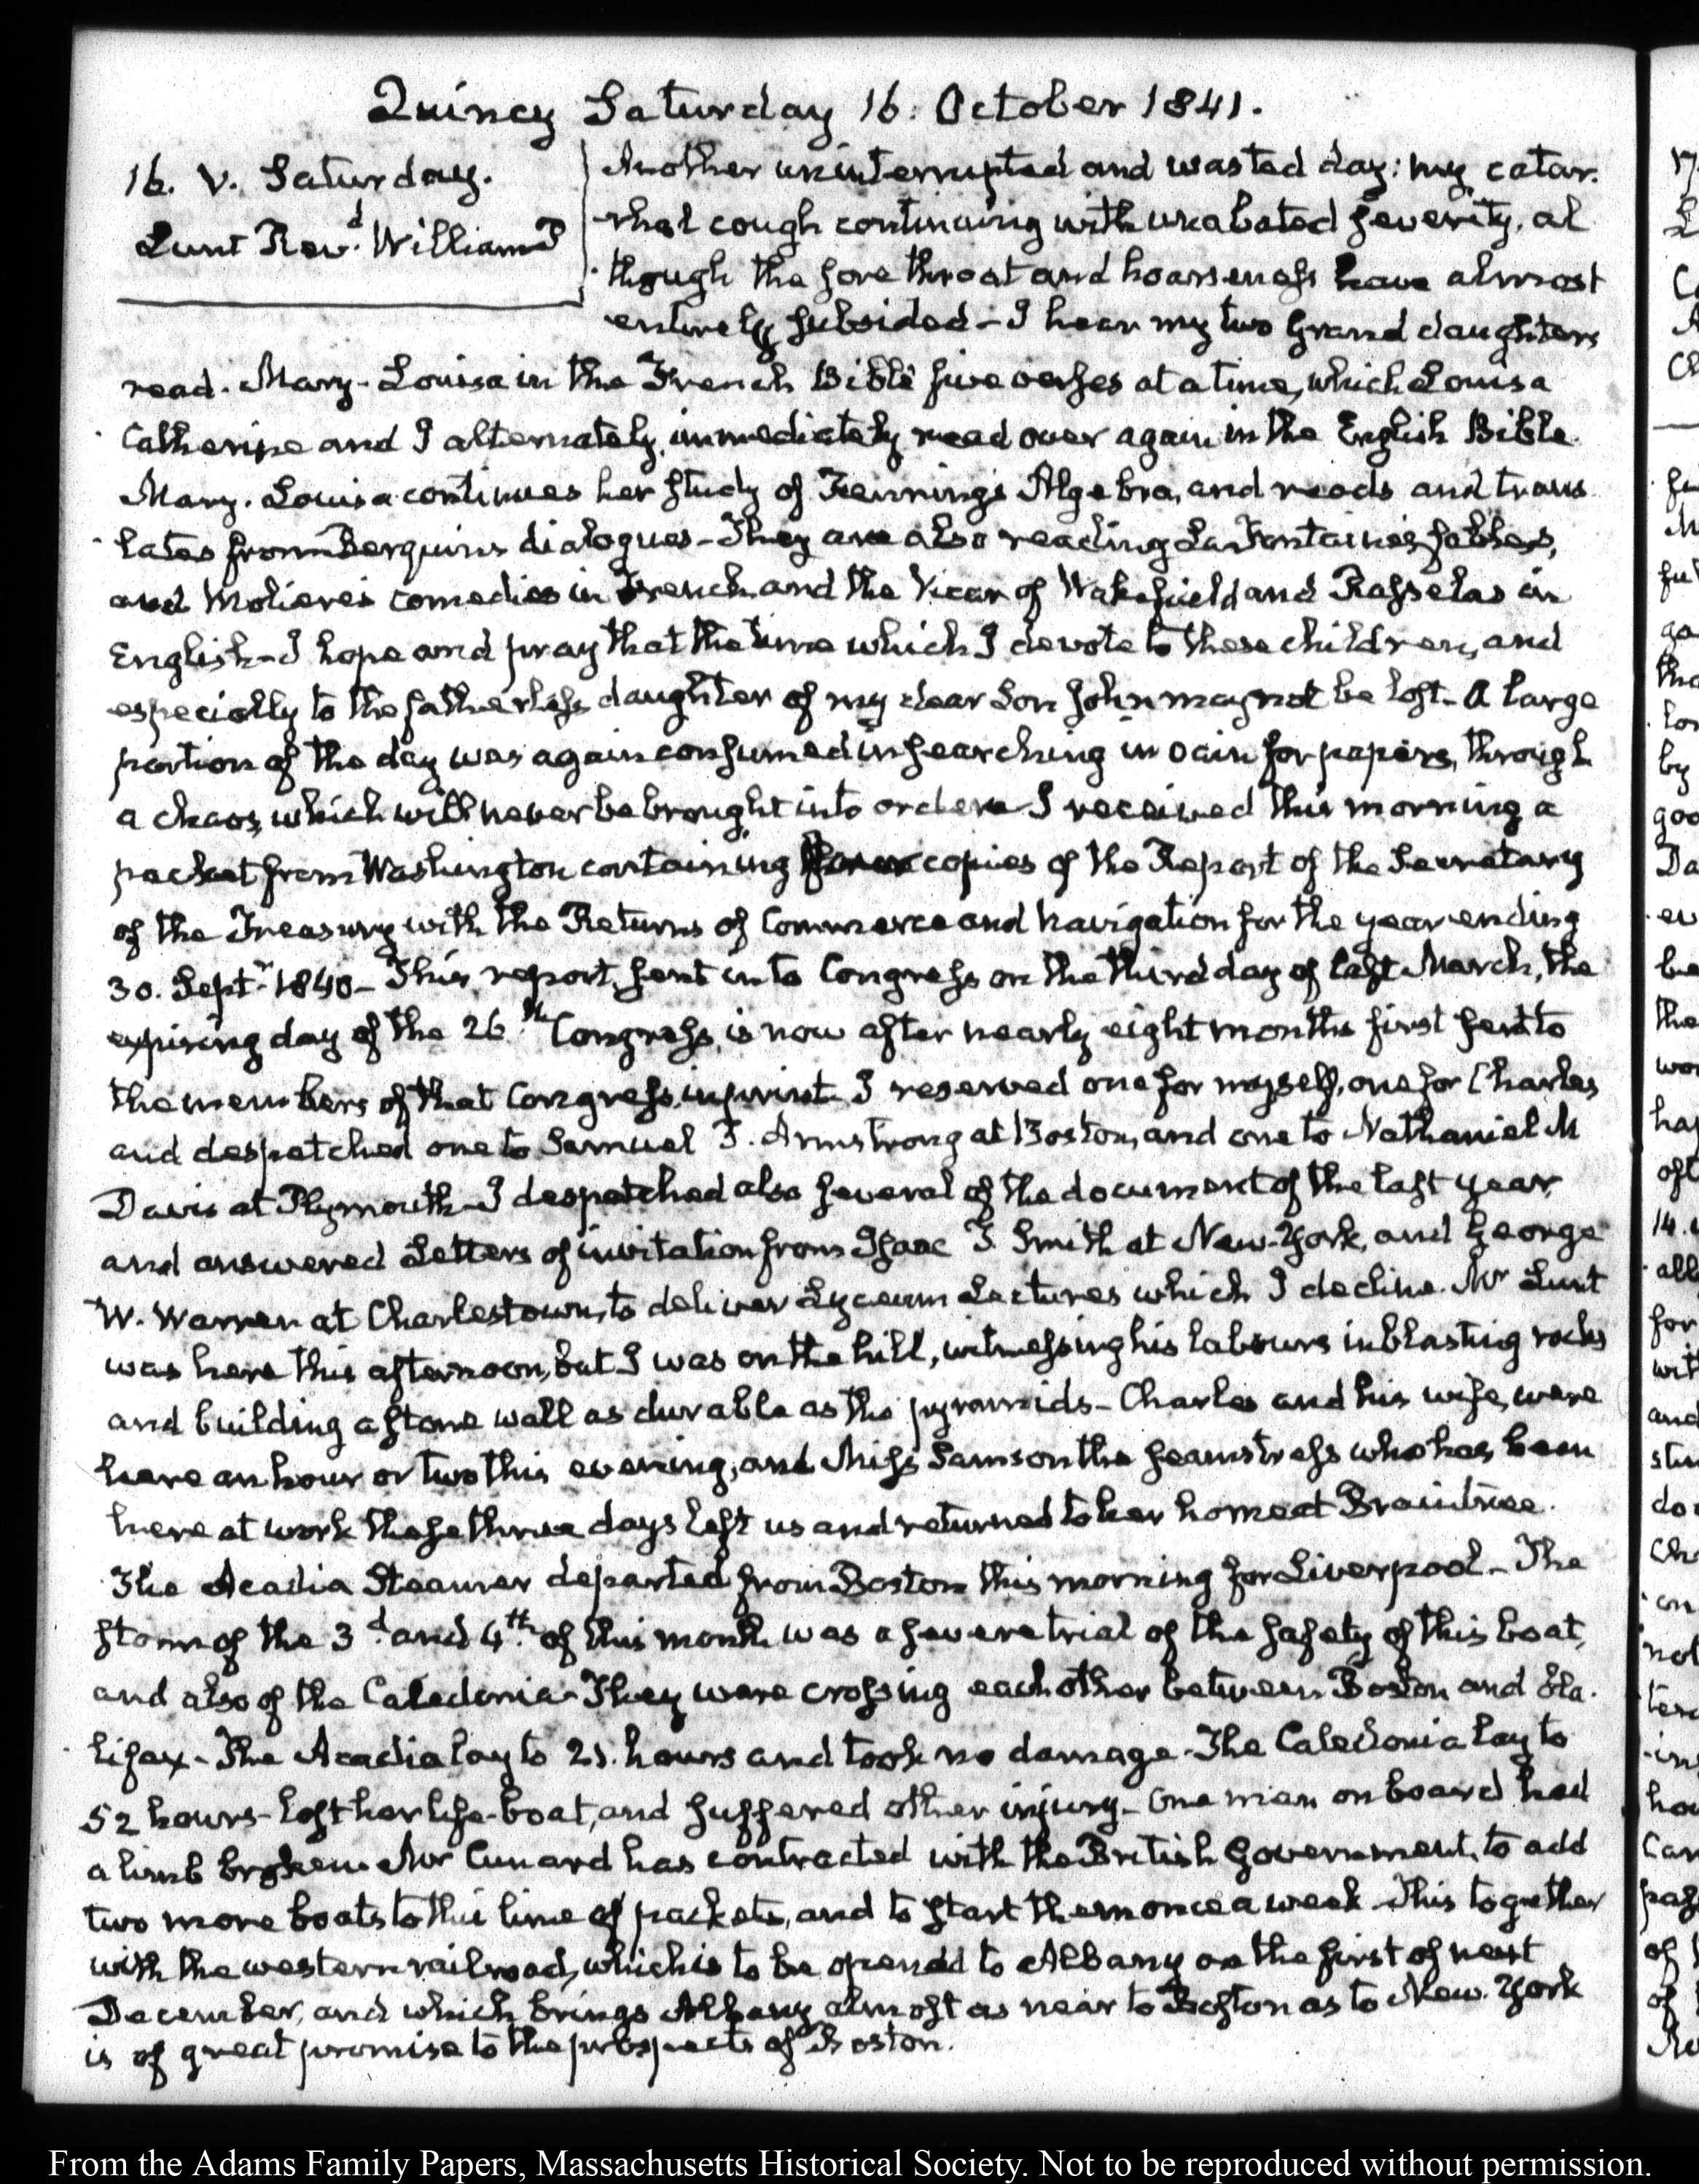 Quincy Saturday 16. October 1841.
16. V. Saturday.
Lunt Revd. William P
Another uninterrupted and wasted day: my catar-
rhal cough continuing with unabated severity, al
though the sore throat and hoarseness have almost
entirely subsided – I hear my two Grand daughters
read. Mary-Louisa in the French Bible five verses at a time, which Louisa
Catherine and I alternately, immediately read over again in the English Bible.
Mary-Louisa continues her study of Algebra, and reads and trans
lates from Berquin's dialogues – They are also reading La Fontaine's fables,
and Moliere's comedies in French and the Vicar of Wakefield and Rasselas in
English – I hope and pray that the time which I devote to these children, and
especially to the fatherless daughter of my dear Son John may not be lost – A large
portion of the day was again consumed in searching in vain for papers, through
a chaos, which will never be brought into order – I received this morning a
packet from Washington containing copies of the Report of the Secretary
of the Treasury with the Returns of Commerce and Navigation for the year ending
30. Septr. 1840 – This report, sent in to Congress on the third day of last March, the
expiring day of the 26th. Congress, is now after nearly eight months first sent to
the members of that Congress, in print. I reserved one for myself, one for Charles
and despatched one to Samuel T. Armstrong at Boston, and one to Nathaniel M
Davis at Plymouth – I despatched also several of the document of the last year,
and answered Letters of invitation from Isaac T. Smith at New-York, and George
W. Warren at Charlestown, to deliver Lyceum Lectures which I decline. Mr Lunt
was here this afternoon, but I was on the hill, witnessing his labours in blasting rocks
and building a stone wall as durable as the pyramids – Charles and his wife, were
here an hour or two this evening, and Miss Samson the seamstress who has been
here at work these three days left us and returned to her home at Braintree.
The Acadia Steamer departed from Boston this morning for Liverpool – The
storm of the 3d. and 4th. of this month was a severe trial of the safety of this boat,
and also of the Caledonia – They were crossing each other between Boston and Ha-
lifax – The Acadia lay to 21. hours and took no damage – The Caledonia lay to
52 hours – lost her life-boat, and suffered other injury – One man on board had
a limb broken. Mr Cunard has contracted with the British Government, to add
two more boats to this line of packets, and to start them once a week – This together
with the western railroad, which is to be opened to Albany on the first of next
December, and which brings Albany almost as near to Boston as to New-York
is of great promise to the prospects of Boston.
From the Adams Family Papers, Massachusetts Historical Society. Not to be reproduced without permission.